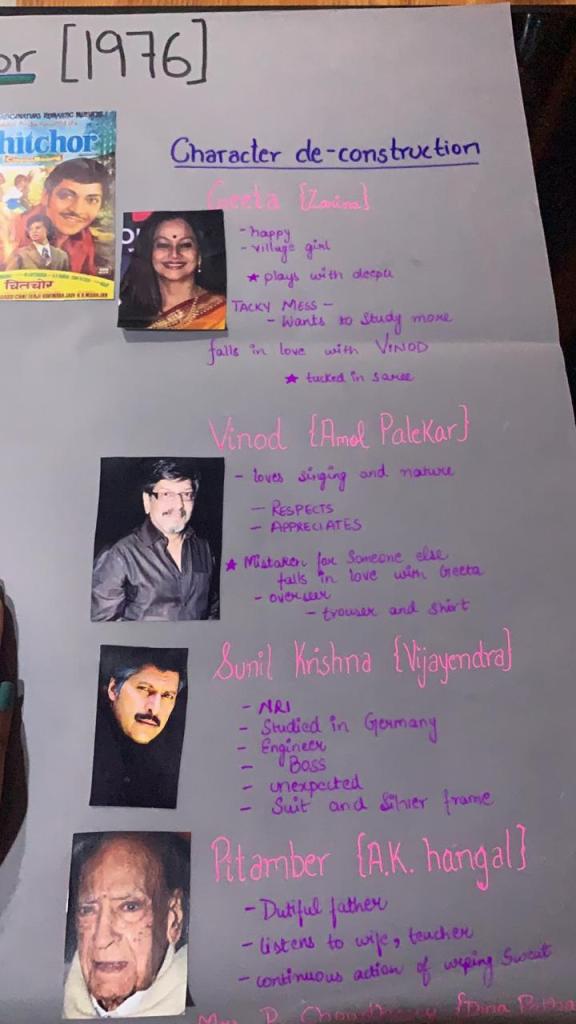 or [1976]
hitchor
चितचोर
Character de-construction
Geeta {Zarina}
- happy
- village girl
★ plays with deepu
TACKY MESS -
- Wants to study more
falls in love with VINOD
★ tucked in saree
Vinod {Amol Palekar}
- loves singing and nature
- RESPECTS
- APPRECIATES
★ Mistaken for Someone else
falls in love with Geeta
- overseer
- trouser and shirt
Sunil Krishna {Vijayendra}
- NRI
- Studied in Germany
- Engineer
- Boss
- unexpected
- Suit and Silver frame
Pitamber {A.K. hangal}
- Dutiful father
- listens to wife, teacher
- continuous action of wiping Sweat
Mrs. P. Choudhary {Dina Patha